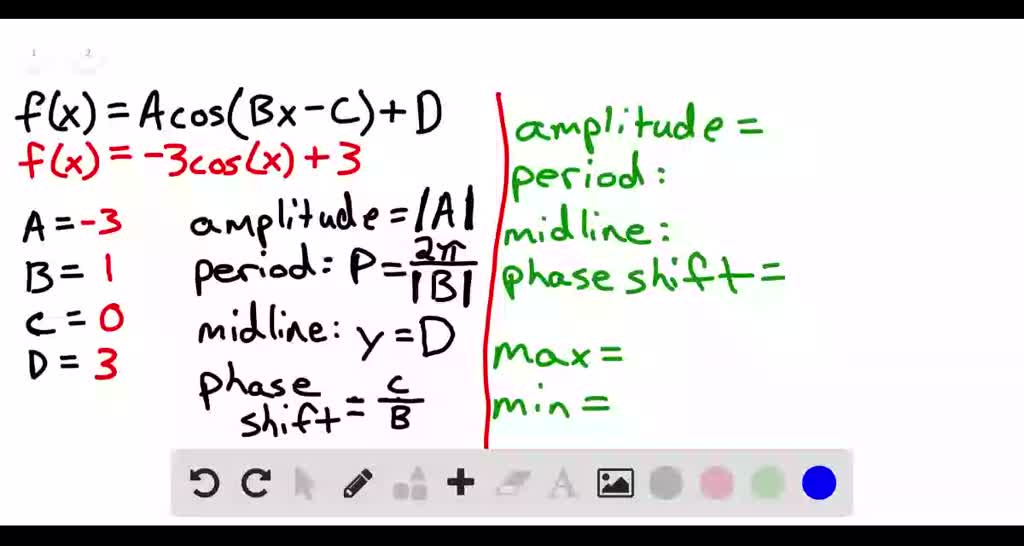 1 2
f(x) = A cos(Bx - C) + D
f(x) = -3cos(x) + 3
A = -3
B = 1
C = 0
D = 3
amplitude = |A|
period: P = 2π/|B|
midline: y = D
phase shift = C/B
amplitude =
period:
midline:
phase shift =
max =
min =
A